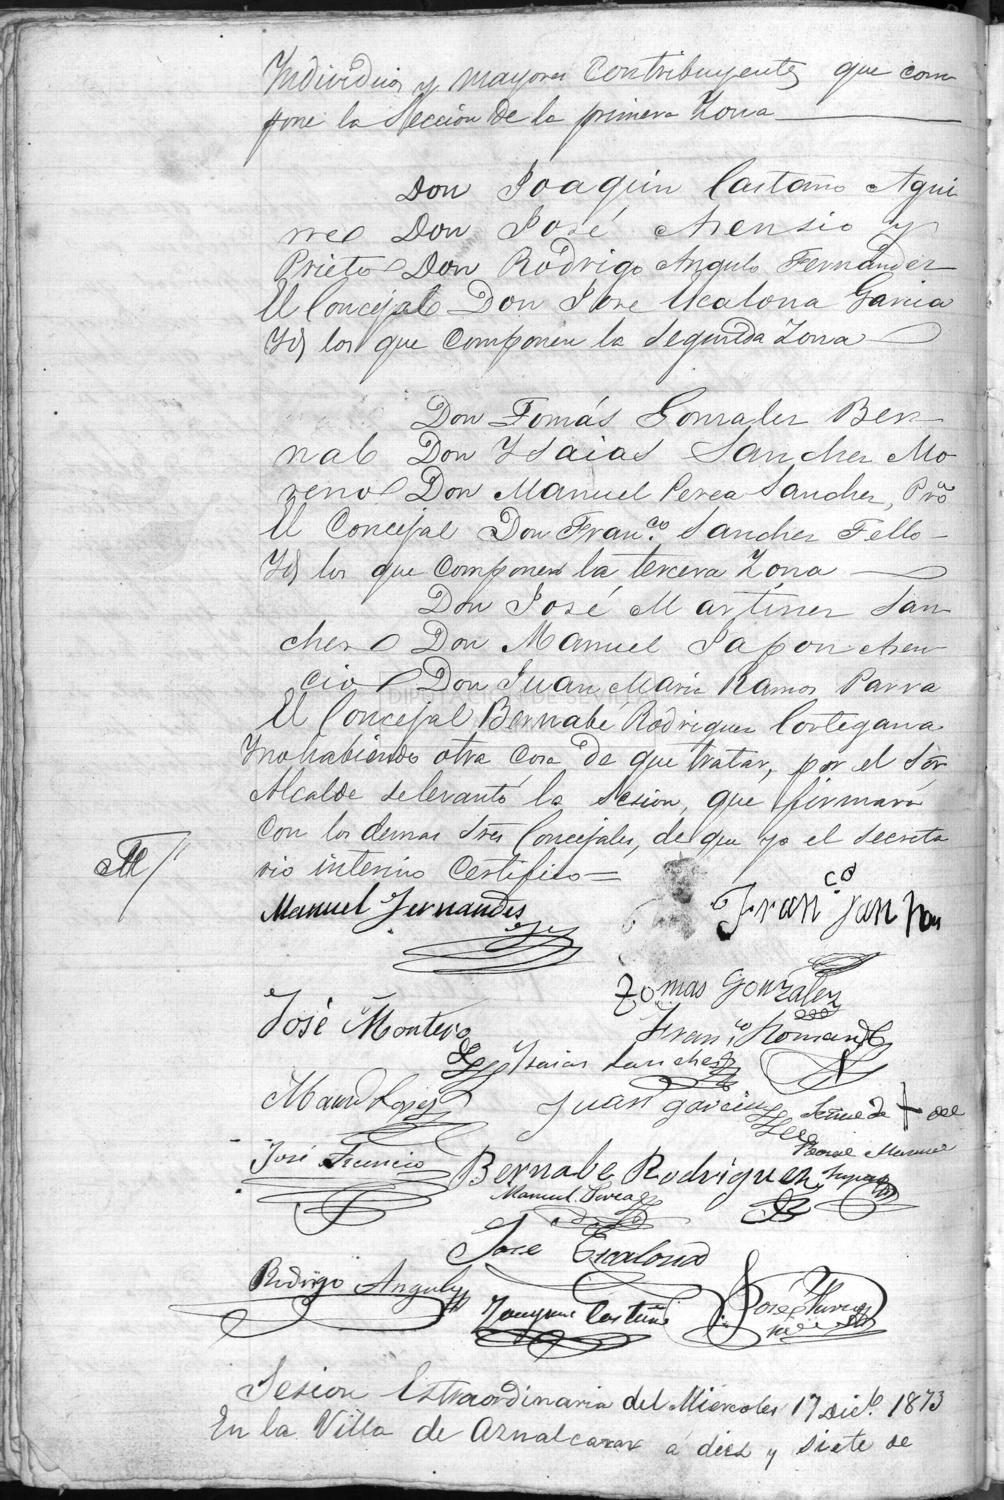 Individuos y mayores Contribuyentes que com
pone la Sección de la primera Zona
Don Joaquin Castaño Agui
rre Don José Asensio y
Prieto Don Rodrigo Angulo Fernandez
El Concejal Don Jose Escalona Garcia
Yd los que Componen la Segunda Zona
Don Tomás Gonzalez Ber-
nal Don Ysaias Sanchez Mo
reno Don Manuel Perea Sanchez, Pro
El Concejal Don Fran.co Sanchez Tello-
Yd los que Componen la tercera Zona
Don José Martinez San
chez Don Manuel Japon Asen
cio Don Juan Maria Ramos Parra
El Concejal Bernabé Rodriguez Cortegana
Y no habiendo otra Cosa de que tratar, por el Sór
Alcalde se levantó la Sesion, que firmará
Con los demas Sres Concejales, de que yo el Secreta
rio interino Certifico=
Manuel Fernandes
Franco San
Tomas Gonzalez
José Montero
Fran.co Roman
Ysaias Sanchez
Manuel Lopez
Juan Garcia
Señal de + del
Manuel
José Asencio
Bernabe Rodriguez
Manuel Perea
Jose Escalona
Rodrigo Angulo
Joaquin Castaño
José
Sesion Estraordinaria del Miercoles 17 Dic.e 1873
En la Villa de Aznalcazar a diez y siete de